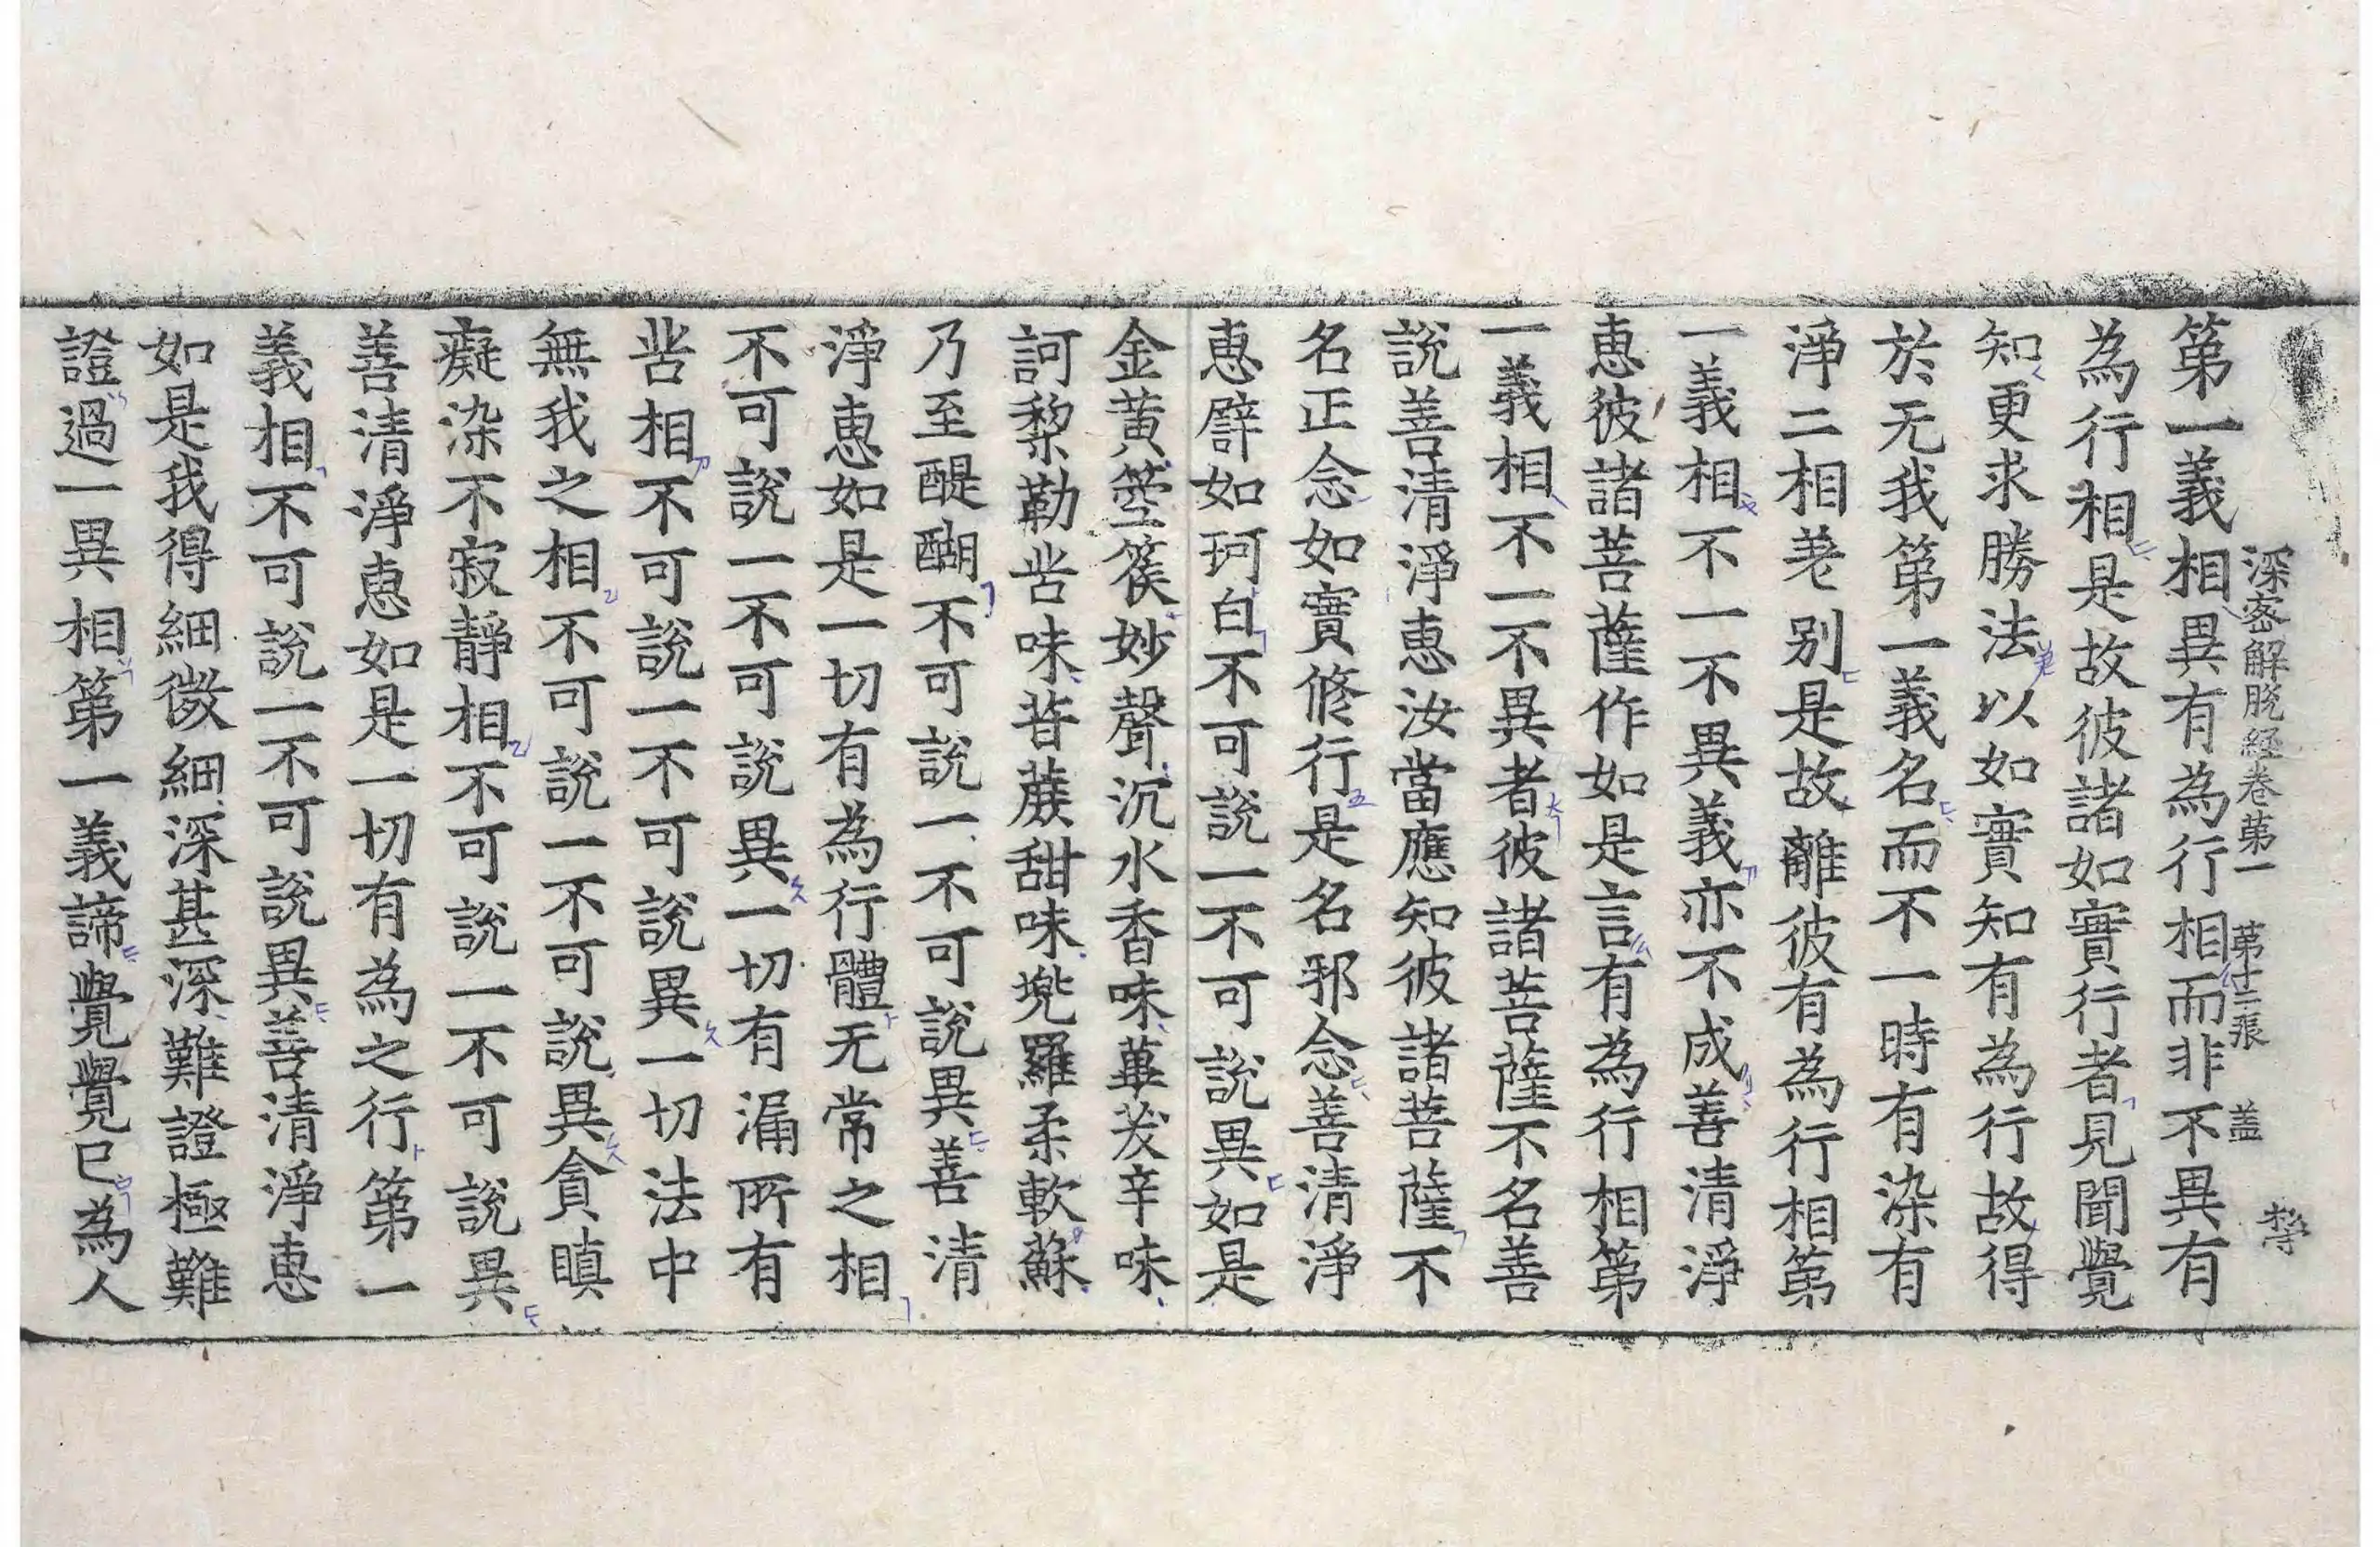 深密解脱經卷苐一 苐十二張 盖
第一義相異有為行相而非不異有
為行相是故彼諸如實行者見聞覺
知更求勝法以如實知有為行故得
於无我第一義名而不一時有染有
淨二相差别是故離彼有為行相第
一義相不一不異義亦不成善清淨
恵彼諸菩薩作如是言有為行相第
一義相不一不異者彼諸菩薩不名善
說善清淨恵汝當應知彼諸菩薩不
名正念如實修行是名邪念善清淨
恵譬如珂白不可說一不可說異如是
金黄箜篌妙聲沉水香味蓽茇辛味
訶黎勒苦味苷蔗甜味兠羅柔軟蘇
乃至醍醐不可說一不可說異善清
淨恵如是一切有為行體无常之相
不可說一不可說異一切有漏所有
苦相不可說一不可說異一切法中
無我之相不可說一不可說異貪瞋
癡染不寂靜相不可說一不可說異
善清淨恵如是一切有為之行第一
義相不可說一不可說異善清淨恵
如是我得細微細深甚深難證極難
證過一異相第一義諦覺覺已為人